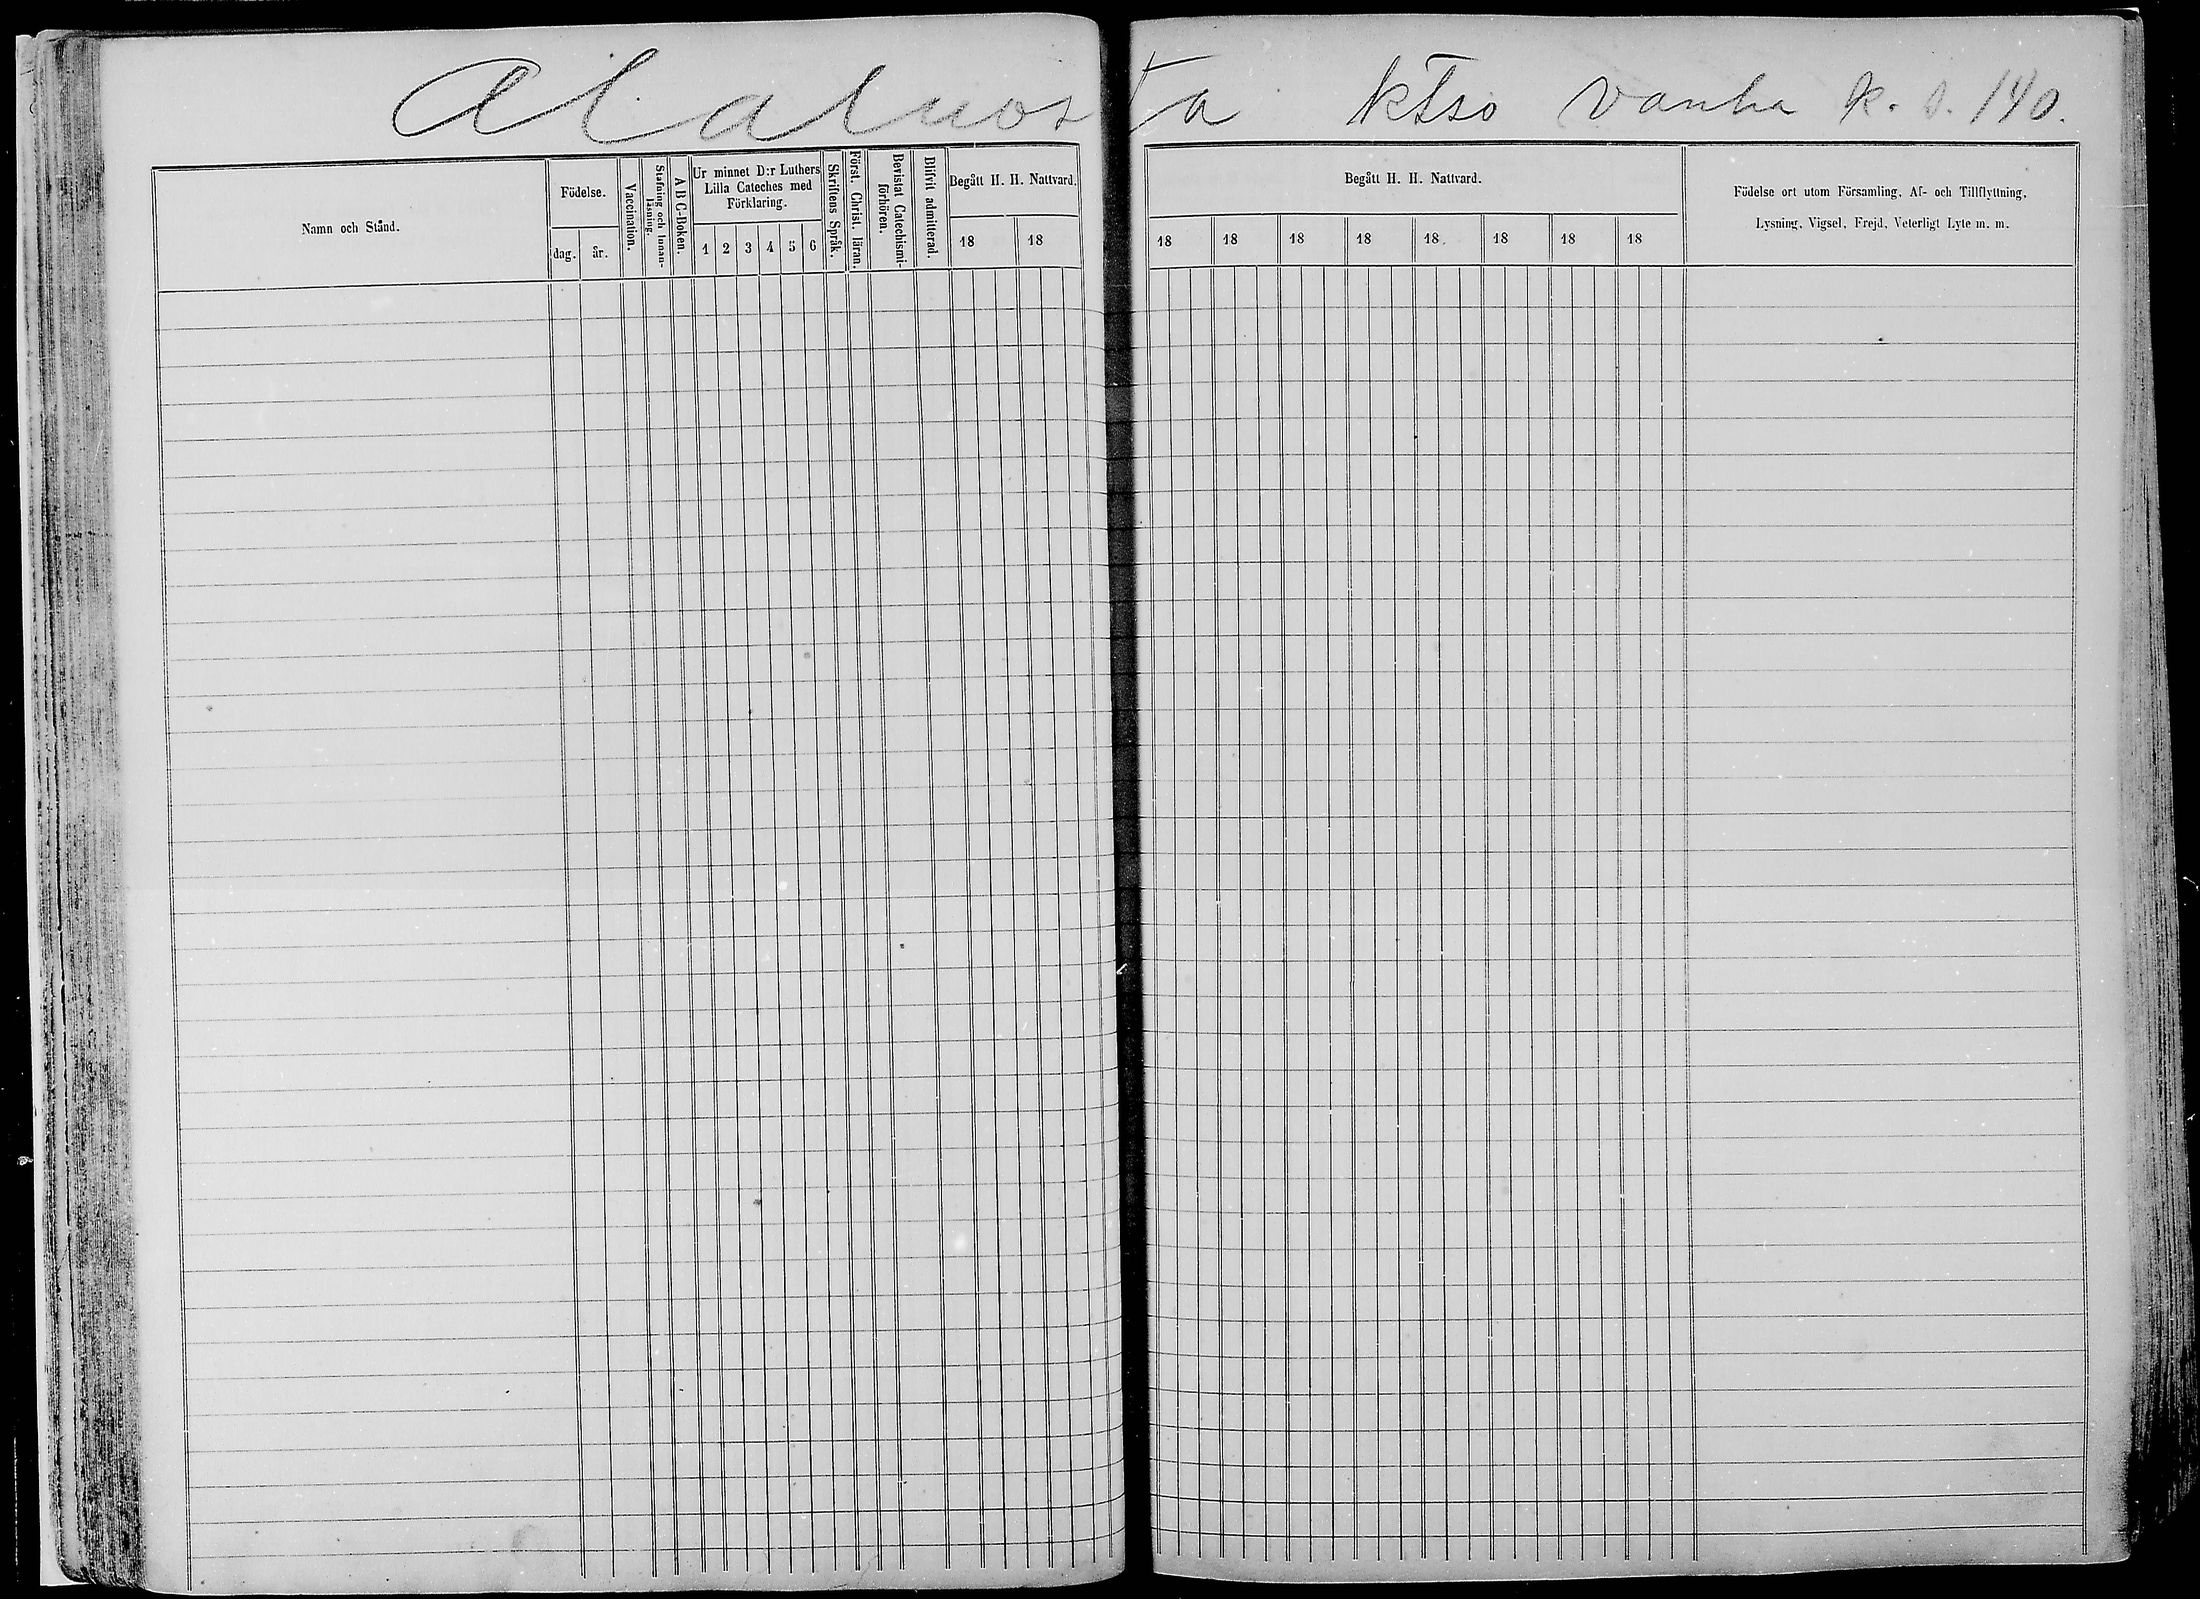 Alaluosta ktso vanha k. s. 140.
Namn och Stånd.
Födelse.
dag. år.
Vaccination.
Stafning och innan-
läsning.
A B C-Boken.
Ur minnet D:r Luthers
Lilla Cateches med
Förklaring.
1 2 3 4 5 6
Skriftens Språk.
Först. Christ. läran.
Bevistat Catechismi-
förhören.
Blifvit admitterad.
Begått H. H. Nattvard.
18 18
Begått H. H. Nattvard.
18 18 18 18 18 18 18 18
Födelse ort utom Församling, Af- och Tillflyttning,
Lysning, Vigsel, Frejd, Veterligt Lyte m. m.